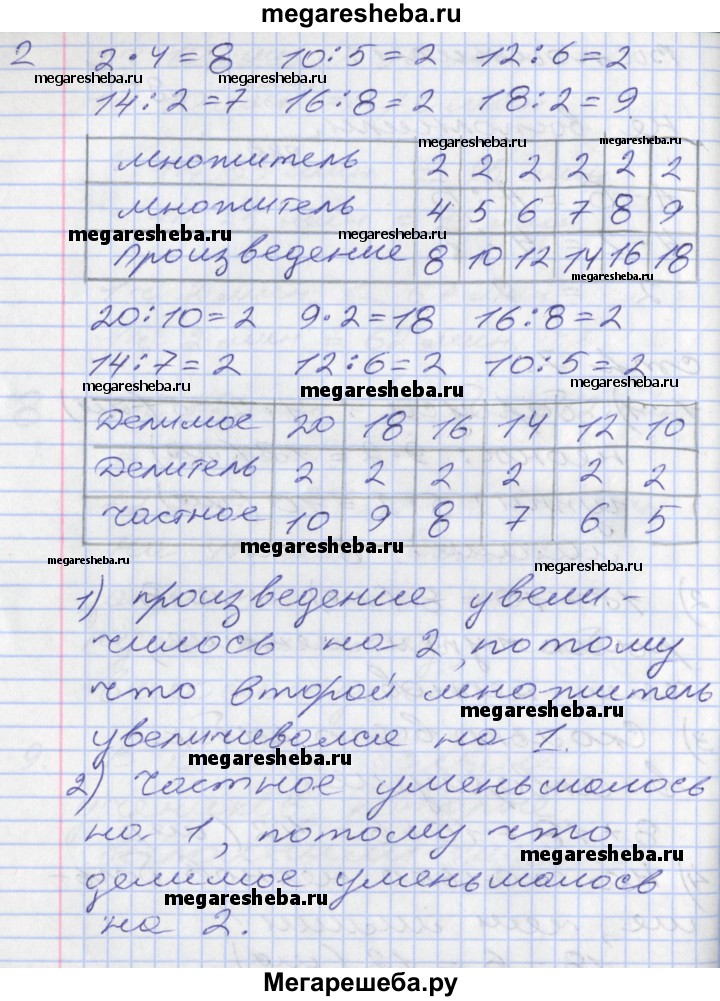 megaresheba.ru
2 2·4=8 10:5=2 12:6=2
megaresheba.ru megaresheba.ru megaresheba.ru
14:2=7 16:8=2 18:2=9
megaresheba.ru
множитель 2 2 2 2 2 2
множитель 4 5 6 7 8 9
megaresheba.ru
Произведение 8 10 12 14 16 18
megaresheba.ru
20:10=2 9·2=18 16:8=2
14:7=2 12:6=2 10:5=2
megaresheba.ru megaresheba.ru megaresheba.ru
Делимое 20 18 16 14 12 10
Делитель 2 2 2 2 2 2
Частное 10 9 8 7 6 5
megaresheba.ru
megaresheba.ru megaresheba.ru
1) произведение увели-
чилось на 2, потому
что второй множитель
megaresheba.ru
увеличивался на 1.
megaresheba.ru
2) частное уменьшалось
на 1, потому что
megaresheba.ru
делимое уменьшалось
megaresheba.ru
на 2.
Мегарешеба.ру